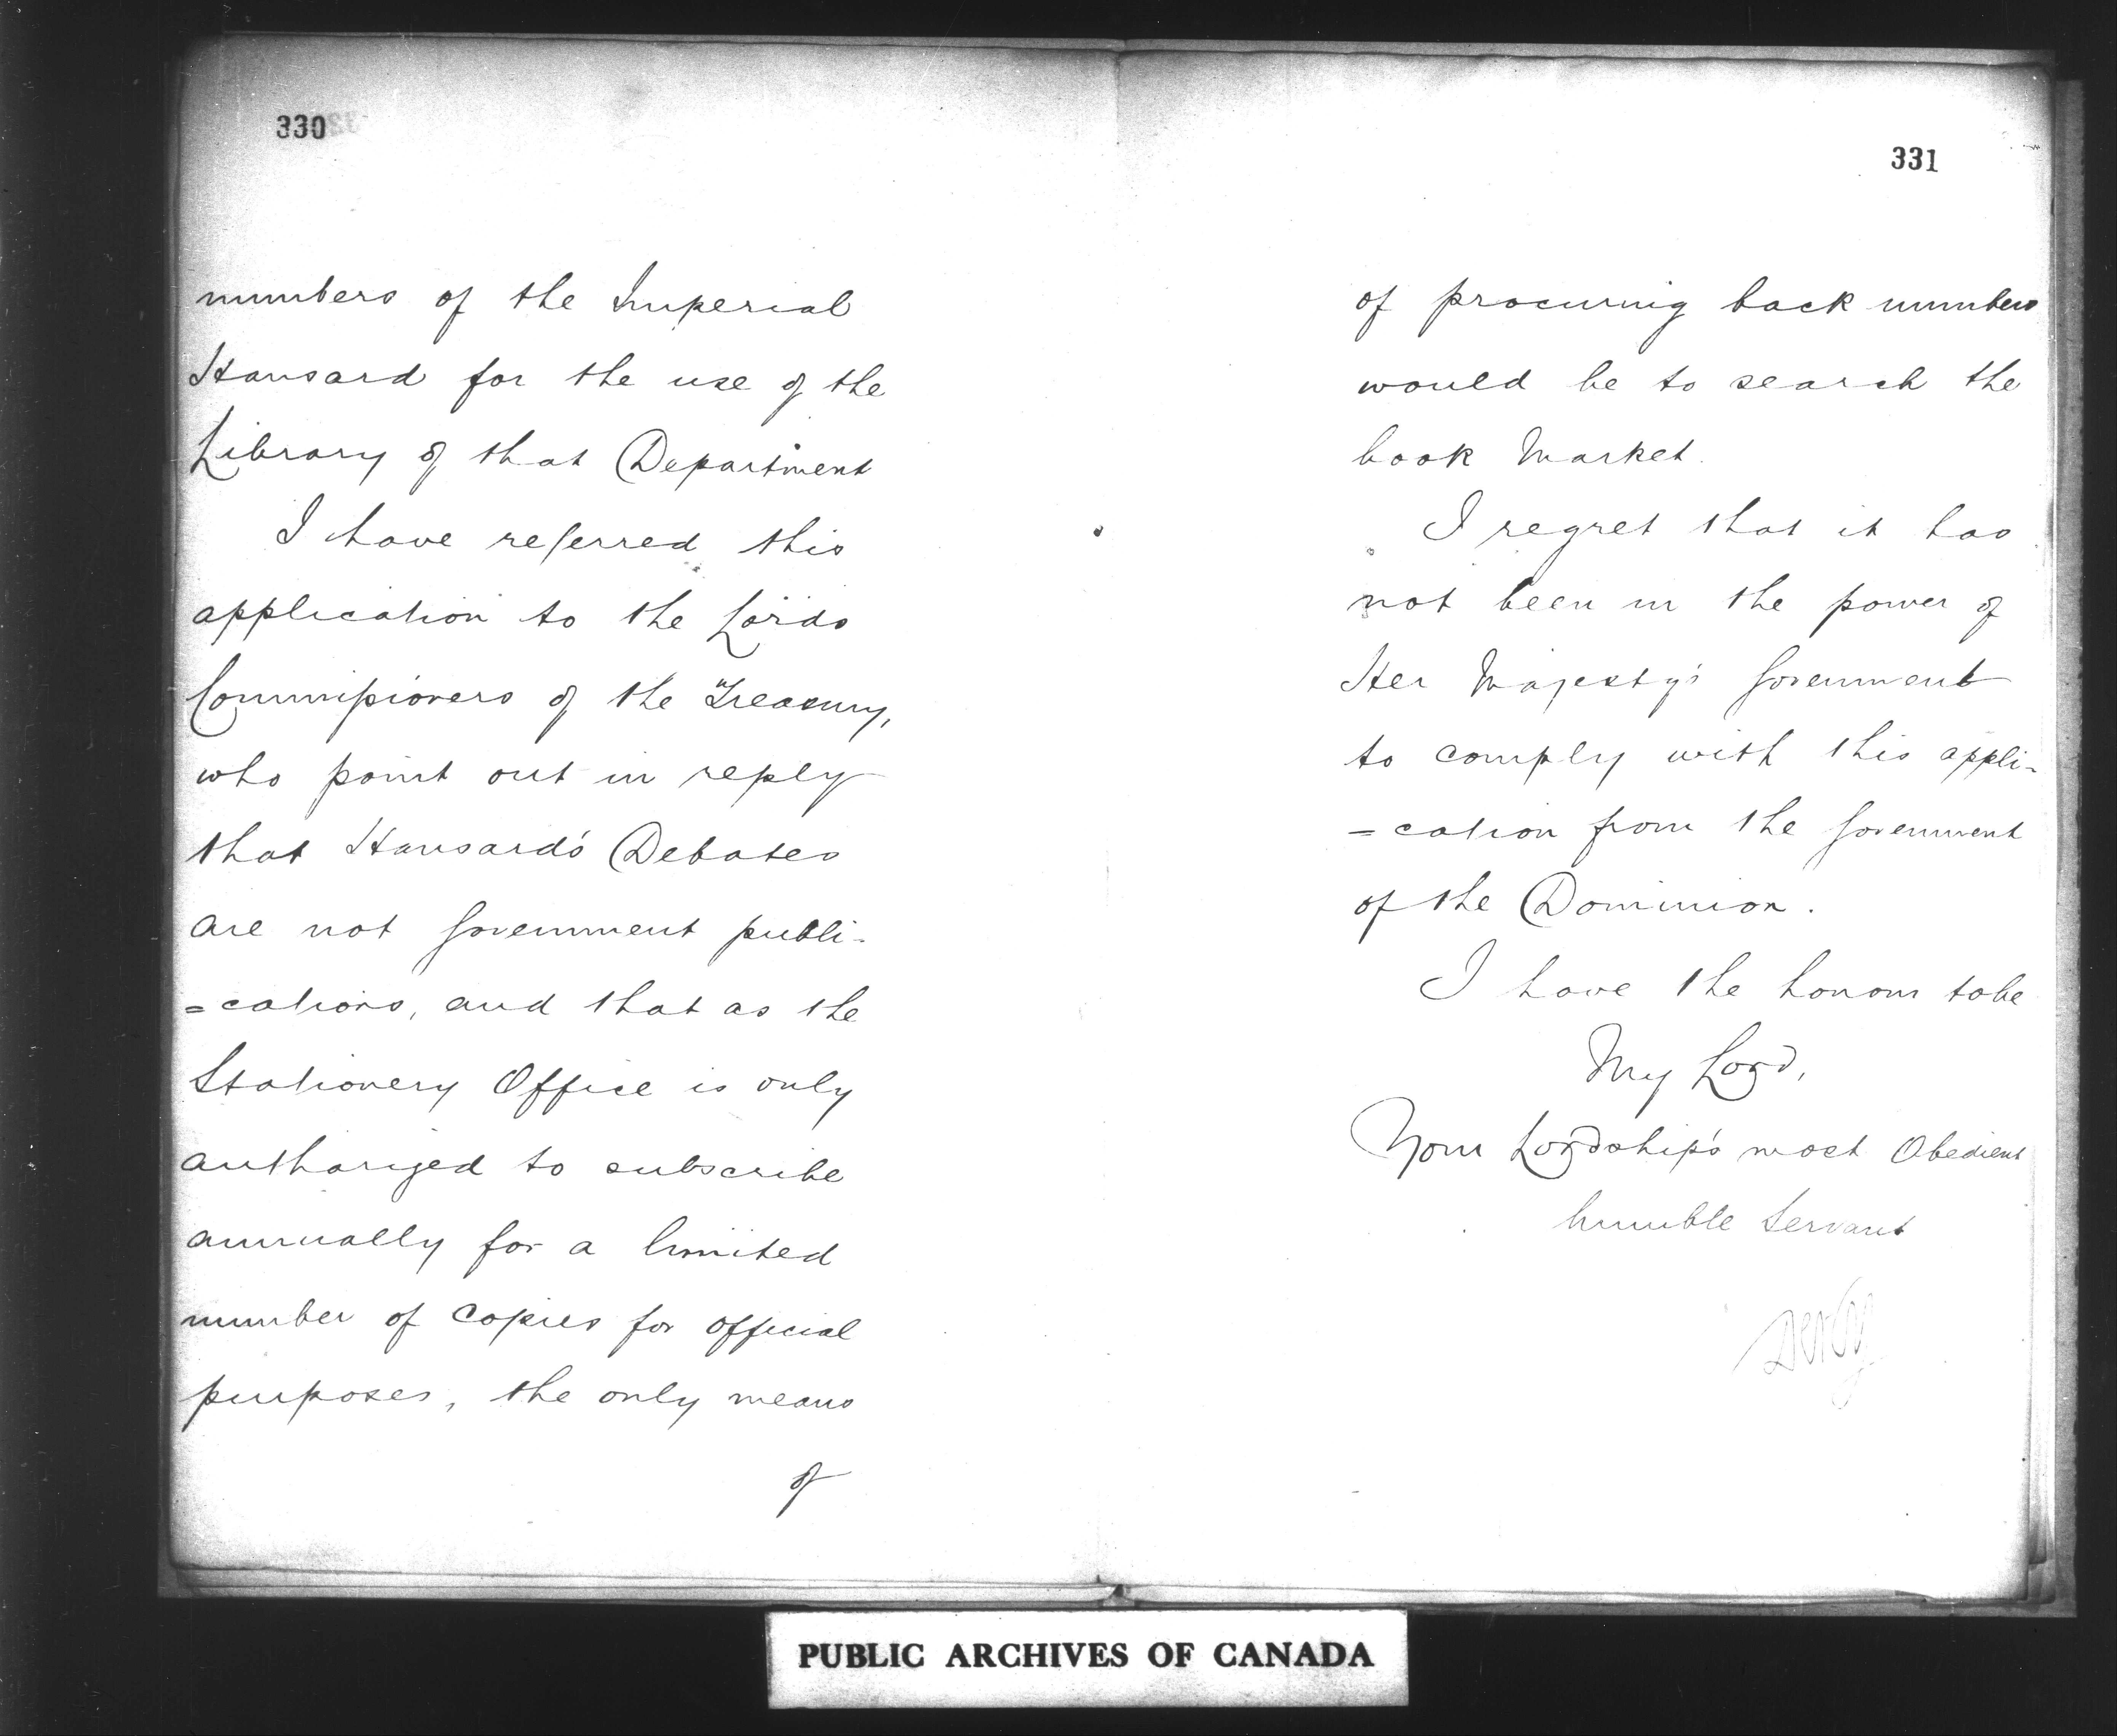 330
numbers of the Imperial
Hansard for the use of the
Library of that Department
I have referred this
application to the Lords
Commissioners of the Treasury,
who point out in reply
that Hansard's Debates
are not Government publi-
=cations, and that as the
Stationery Office is only
authorized to subscribe
annually for a limited
number of copies for official
purposes, the only means
of
331
of procuring back numbers
would be to search the
book Market.
I regret that it has
not been in the power of
Her Majesty's Government
to comply with this appli-
=cation from the Government
of the Dominion.
I have the honour to be
My Lord,
Your Lordship's most Obedient
humble Servant
Derby
PUBLIC ARCHIVES OF CANADA